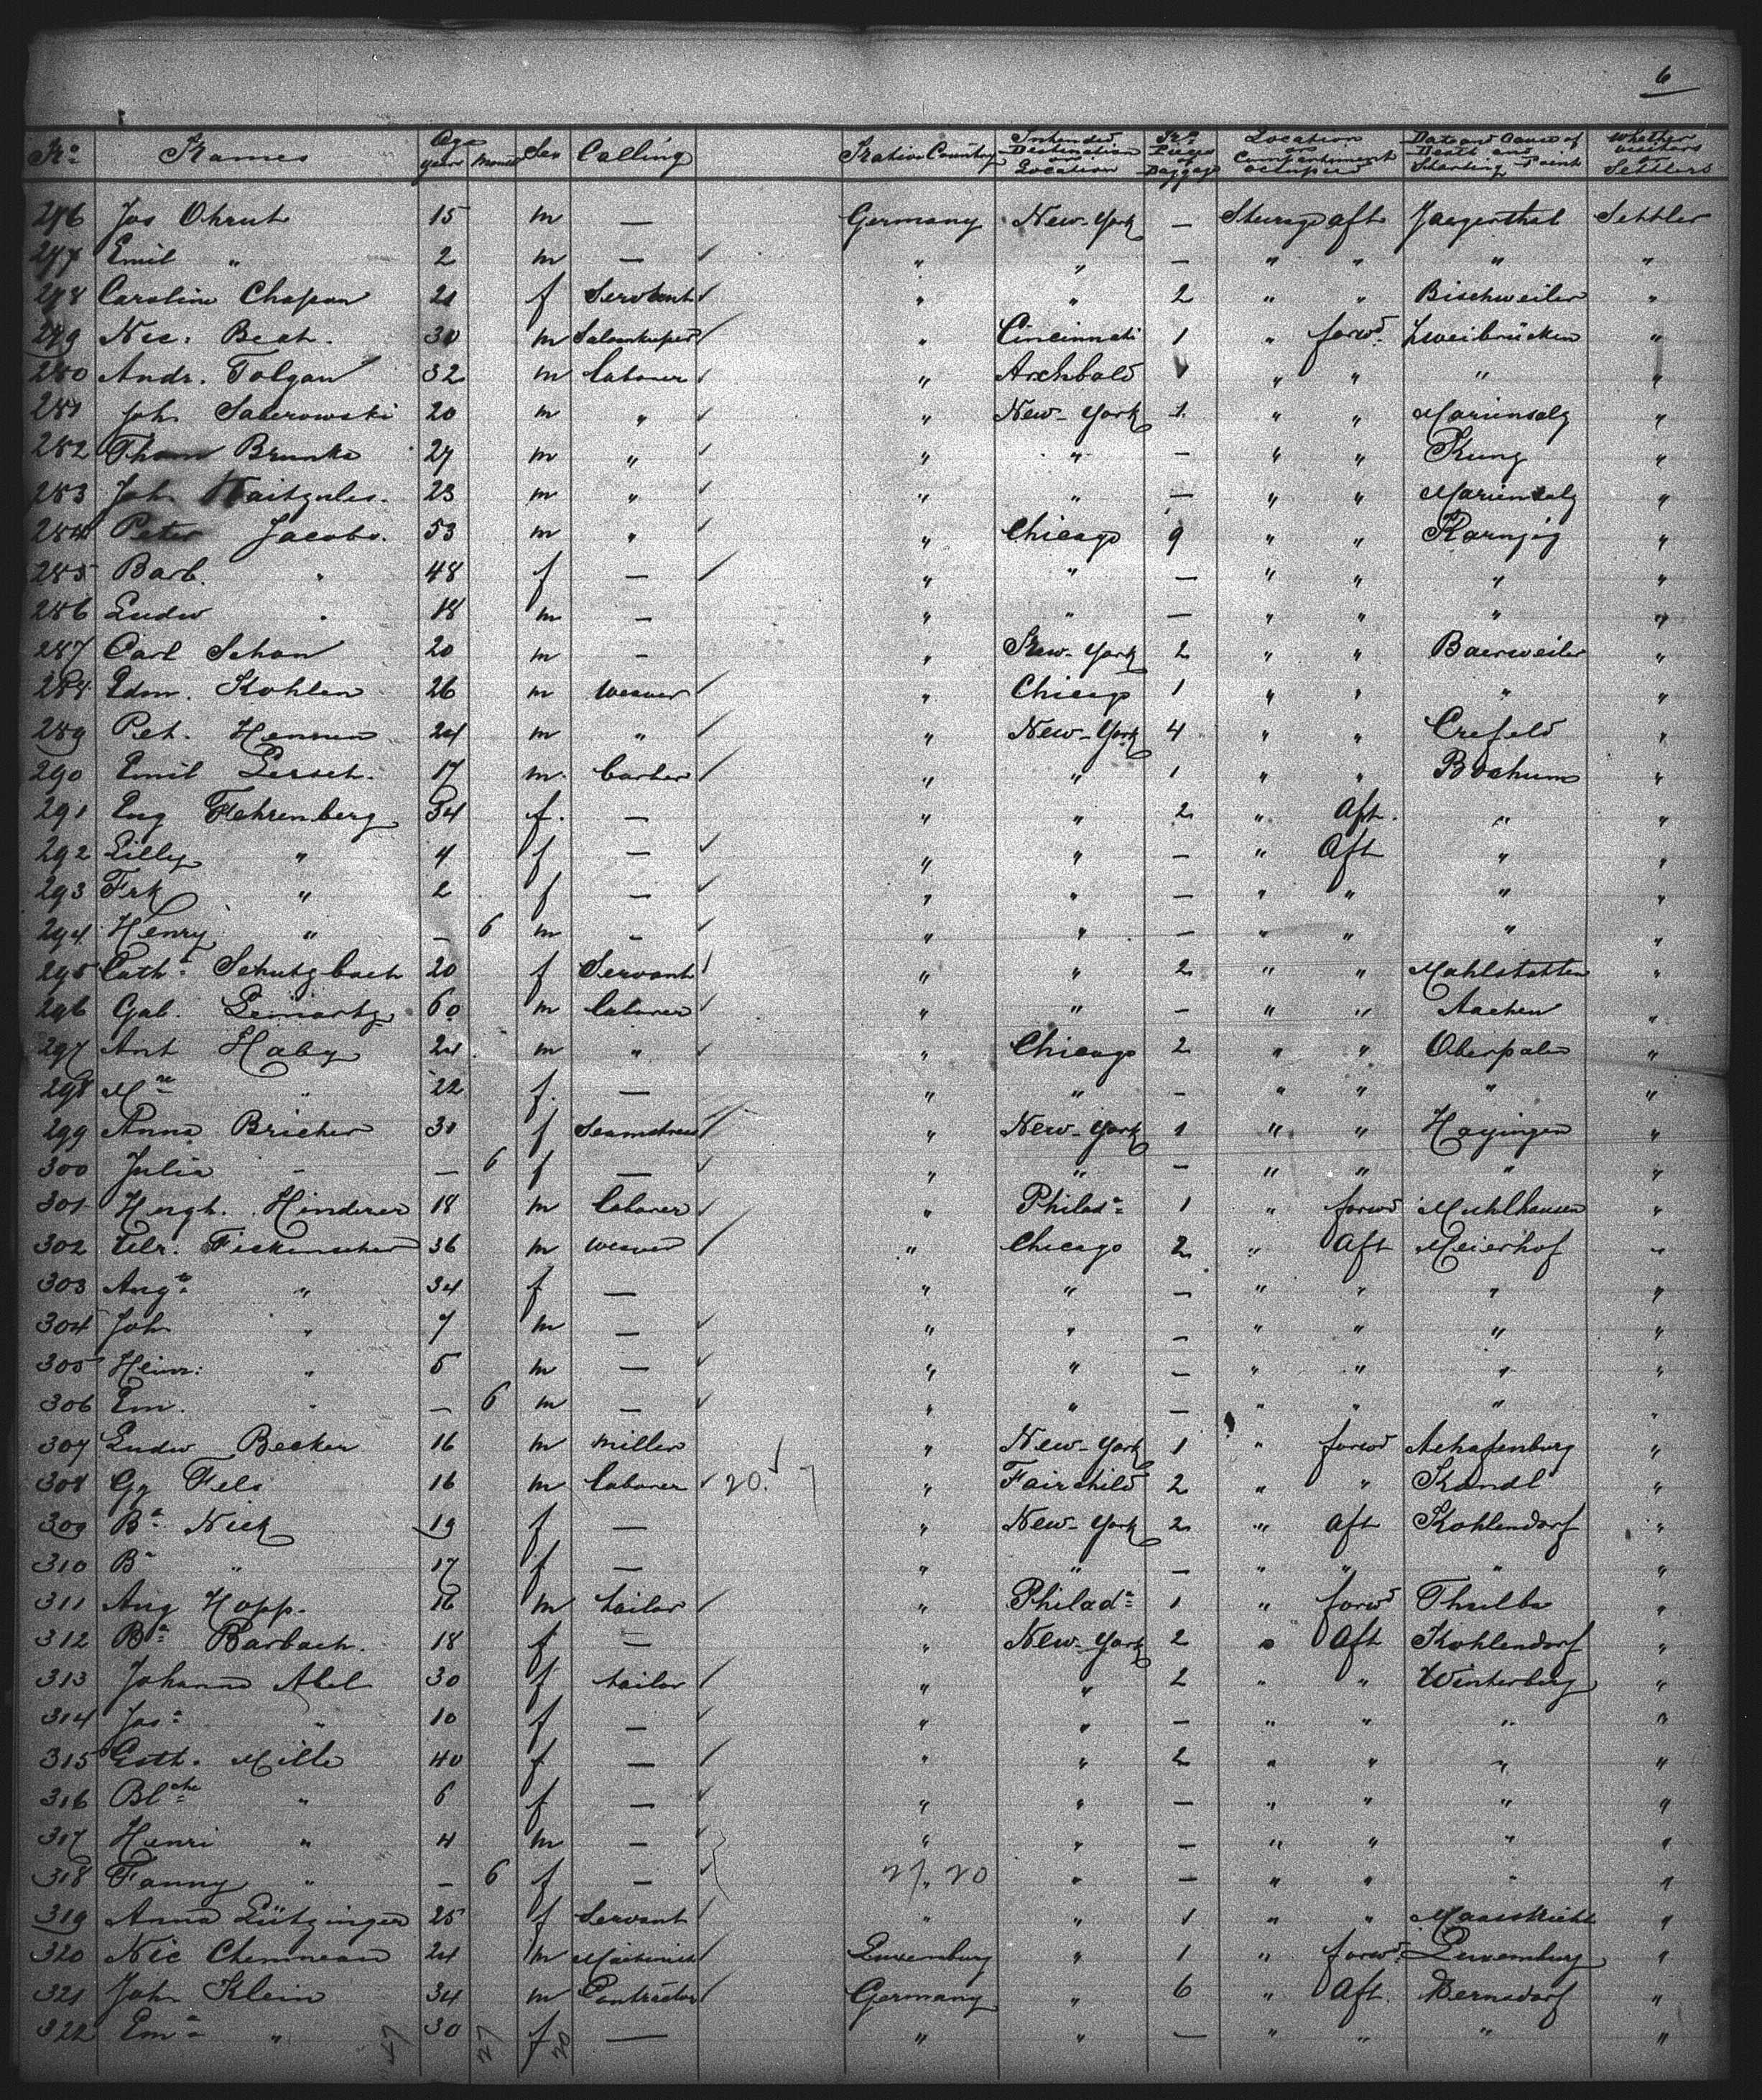 6
No Names Age years Months Sex Calling Native Country Intended Destination or Location No Pieces of Baggage Location or Compartment occupied Date and Cause of Death and Starting Point Whether Visitors or Settlers
276 Jos Ohrut 15 m — Germany New-York — Steerage aft Jaegerthal Settler
277 Emil " 2 m — " " — " " " "
278 Carolin Chapon 21 f Servant " " 2 " " Bischweiler "
279 Nic. Bech. 30 m Salonkeeper " Cincinnati 1 " forwd. Zweibrücken "
280 Andr. Tolgau 32 m laborer " Archbald 1 " " " "
281 Joh Saberowski 20 m " " New-York 1 " " Mariensalz "
282 Thom Brunks 27 m " " " — " " Kung "
283 Joh 23 m " " " — " " Mariensalz "
284 Peter Jacobs. 53 m " " Chicago 9 " " "
285 Barb. " 48 f — " " — " " " "
286 Ludw " 18 m — " " — " " " "
287 Carl Schon 20 m — " New-York 2 " " Baerweiler "
288 Edm. Kohlen 26 m weaver " Chicago 1 " " " "
289 Pet. Hennen 24 m " " New-York 4 " " Crefeld "
290 Emil Lersch. 17 m. barber " " 1 " " Bochum "
291 Eug Fehrenberg 34 f. — " " 2 " Aft. " "
292 Lilly " 4 f — " " — " Aft " "
293 Frk " 2 f — " " — " " " "
294 Henry " — 6 m — " " — " " " "
295 Cath. Schutzbach 20 f Servant " " 2 " " Mahlstatten "
296 Gab. Leinartz 60 m laborer " " — " " Aachen "
297 Ant Haby 24 m " " Chicago 2 " " Oberpalen "
298 Me " 22 f. — " " — " " " "
299 Anna Bricher 31 f Seamstress " New-York 1 " " Hayingen "
300 Julia " — 6 f — " " — " " " "
301 Hugh. Hinderer 18 m laborer " Philada 1 " forwd Muhlhausen "
302 Ulr. Fickenscher 36 m weaver " Chicago 2 " Aft Meierhof "
303 Auga " 34 f — " " — " " " "
304 Joh " 7 m — " " — " " " "
305 Heinr: " 5 m — " " — " " " "
306 Em. " — 6 m — " " — " " " "
307 Ludw Becker 16 m miller " New-York 1 " forwd Achafenburg "
308 Gg Fels 16 m laborer 20. " Fairchild 2 " " Kandl "
309 Ba Nick 19 f — " New-York 2 " aft Kohlendorf "
310 Ba " 17 f — " " — " " " "
311 Aug Hopp. 16 m tailor " Philada 1 " forwd Thulba "
312 Ba Barbach. 18 f — " New-York 2 " Aft Kohlendorf "
313 Johanna Abel 30 f tailor " " 2 " " Winterberg "
314 Josa " 10 f — " " — " " " "
315 Cath. Mille 40 f — " " 2 " " " "
316 Blche " 6 f — " " — " " " "
317 Henri " 4 m — " " — " " " "
318 Fanny " — 6 f — 27 20 " — " " " "
319 Anna Lützinger 25 f Servant " " 1 " " Maastricht "
320 Nic Chemneau 24 m Machinist Luxemburg " 1 " forwd. Luxemburg "
321 Joh Klein 34 m Contractor Germany " 6 " Aft. Bernsdorf "
322 Ema " 30 f — " " — " " " "
27 27 20